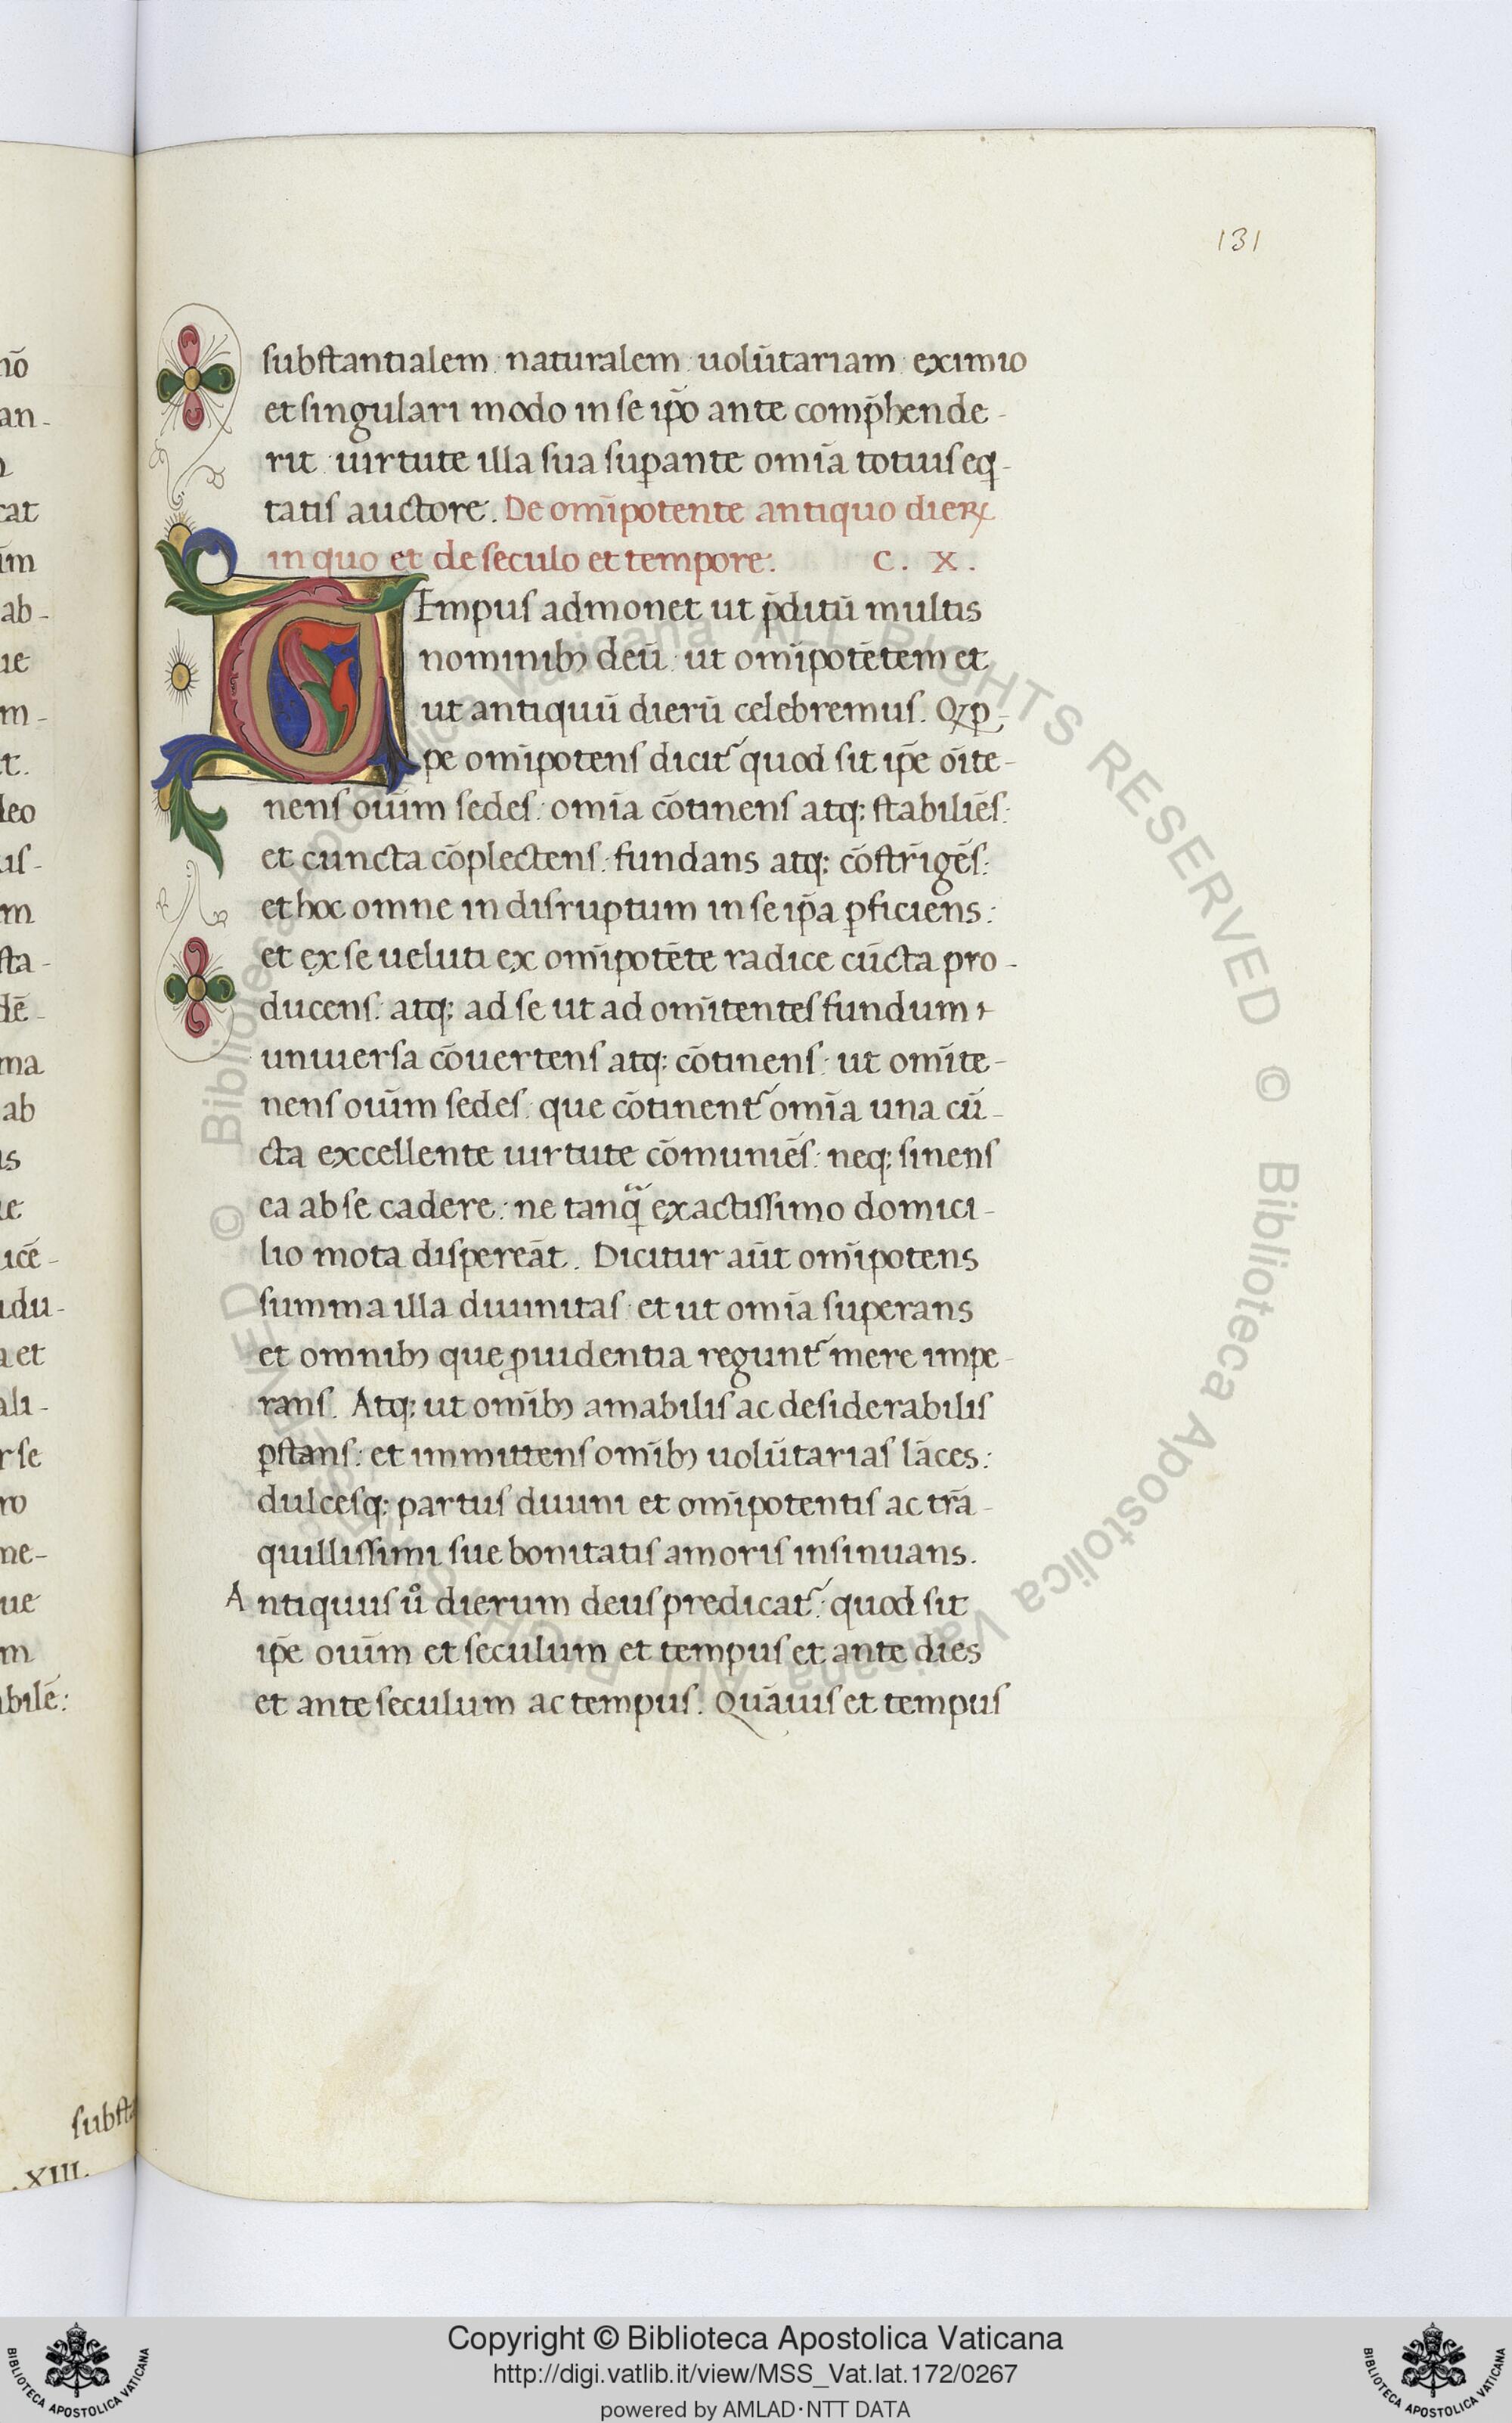 131
substantialem: naturalem: uolūtariam: eximio
et singulari modo in se ip̄o ante comp̄hende-
rit: uirtute illa sua suꝑante om̄ia totius eq-
tatis auctore. De om̄ipotente antiquo dieꝝ
in quo et de seculo et tempore: C. X.
TEmpus admonet ut p̄ditū multis
nominibꝫ deū: ut om̄ipotētem et
ut antiquū dierū celebremus. Qꝑ-
pe om̄ipotens dicit᷑ quod sit ip̄e ōite-
nens ouīm sedes: om̄ia cōtinens atq: stabiliēs:
et cuncta cōplectens: fundans atq: cōstrīgēs:
et hoc omne indisruptum in se ip̄a ꝑficiens:
et ex se ueluti ex om̄ipotēte radice cūcta pro-
ducens: atq: ad se ut ad om̄itentes fundum
uniuersa cōuertens atq: cōtinens: ut om̄ite-
nens ouīm sedes: que cōtinent᷑ om̄ia una cū-
cta excellente uirtute cōmuniēs: neq: sinens
ea ab se cadere: ne tanq̄ exactissimo domici-
lio mota dispereāt. Dicitur aūt om̄ipotens
summa illa diuinitas: et ut om̄ia superans
et omnibꝫ que ꝓuidentia regunt᷑ mere impe-
rans. Atq: ut om̄ibꝫ amabilis ac desiderabilis
ꝑstans: et immittens om̄ibꝫ uolūtarias lāces:
dulcesq: partus diuini et om̄ipotentis ac trā-
quillissimi sue bonitatis amoris insinuans.
Antiquus uͦ dierum deus predicat᷑: quod sit
ip̄e ouīm et seculum et tempus et ante dies
et ante seculum ac tempus. Quāuis et tempus
substa
.XIII.
Copyright © Biblioteca Apostolica Vaticana
http://digi.vatlib.it/view/MSS_Vat.lat.172/0267
powered by AMLAD·NTT DATA